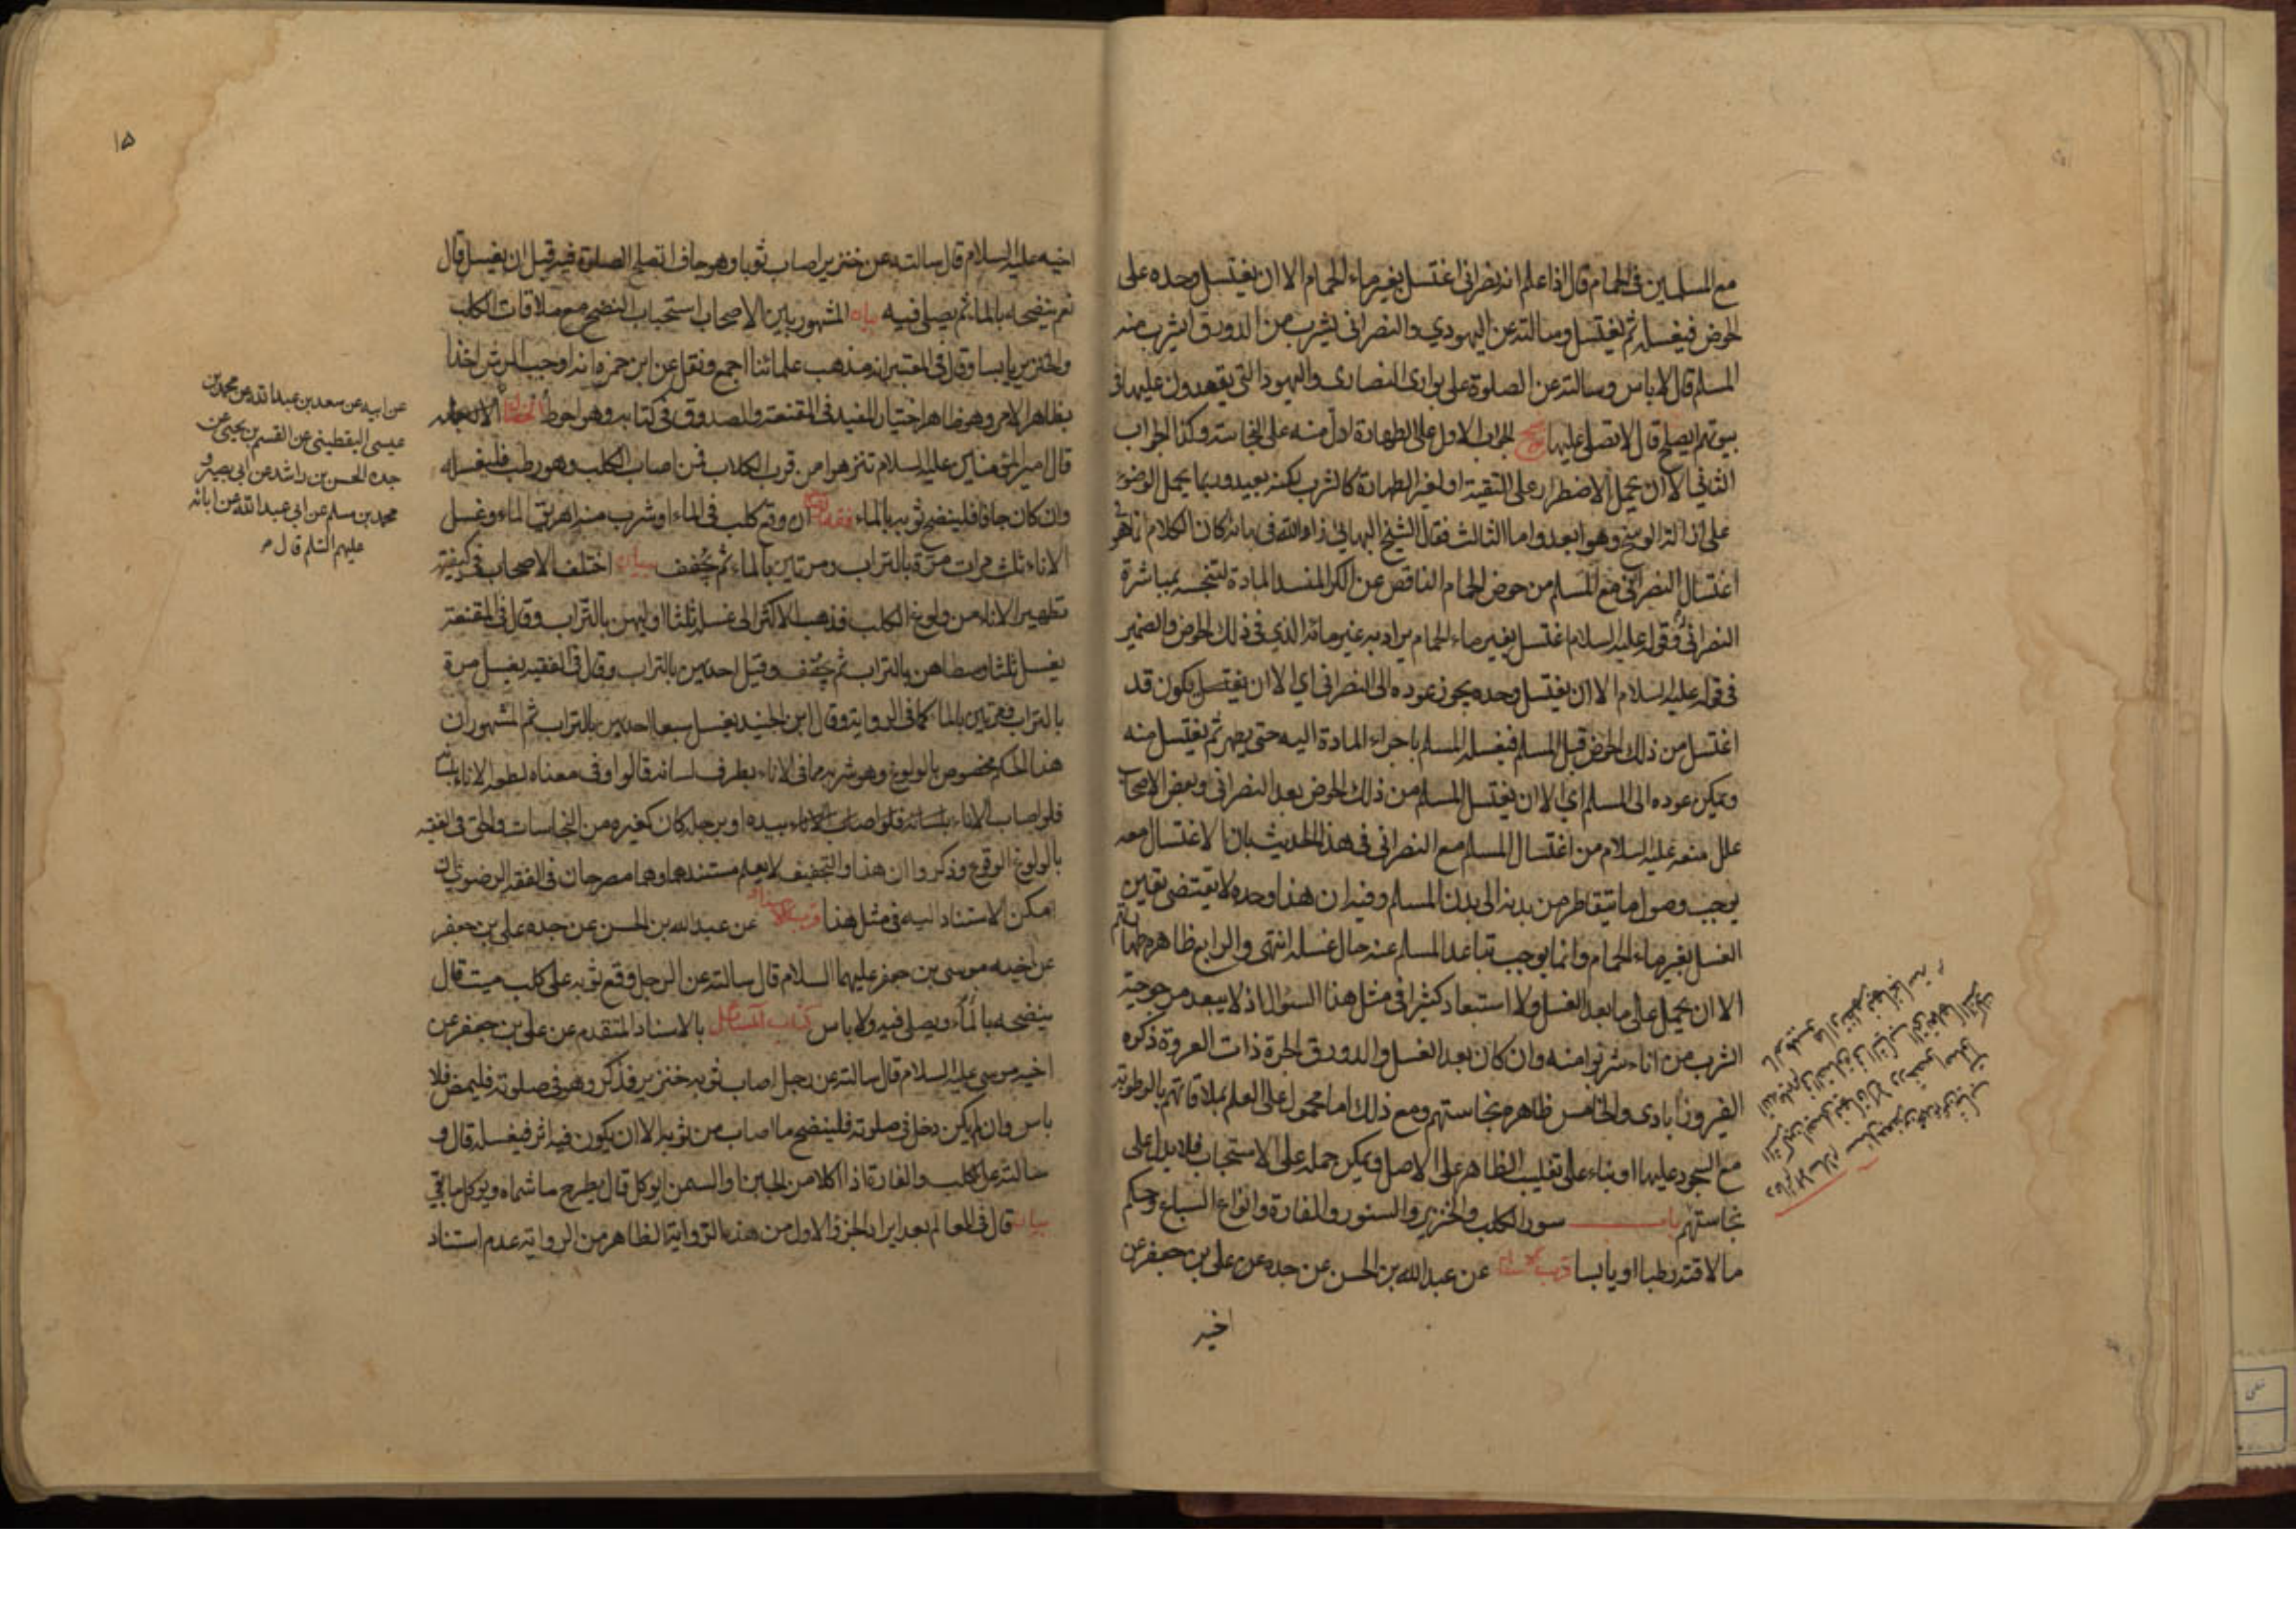 مع المسلمين في الحمام قال اذا علم انه نصراني اغتسل بغير ماء الحمام الا ان يغتسل وحده على
الحوض فيغسله ثم يغتسل وسالته عن اليهودي والنصراني يشرب من الدورق ايشرب منه
المسلم قال لا باس وسالته عن الصلوة على بواري النصارى واليهود التي يقعدون عليها في
بيوتهم ايصلح قال لا تصلى عليها الجواب الاول على الطهارة ادل منه على النجاسة وكذا الجواب
الثاني الا ان يحمل الاضطرار على التقية او لغير الطهارة كالشرب لكنه بعيد وربما يحمل الوضوء
على ازالة الوسخ وهو ابعد واما الثالث فقال الشيخ البهائي زاد الله في بهائه كان الكلام انما هو في
اغتسال النصراني مع المسلم من حوض الحمام الناقص عن الكر المنسد المادة لتنجسه بمباشرة
النصراني وقوله عليه السلام اغتسل بغير ماء الحمام يراد به غير مائه الذي في ذلك الحوض والضمير
في قوله عليه السلام الا ان يغتسل وحده يجوز عوده الى النصراني اي الا ان يغتسل يكون قد
اغتسل من ذلك الحوض قبل المسلم فيغسله المسلم باجراء المادة اليه حتى يطهر ثم يغتسل منه
ويمكن عوده الى المسلم اي الا ان يغتسل المسلم من ذلك الحوض بعد النصراني وبعض الاصحاب
علل منعه عليه السلام من اغتسال المسلم مع النصراني في هذا الحديث بان الاغتسال معه
يوجب وصول ما يتقاطر من بدنه الى بدن المسلم وفيه ان هذا وحده لا يقتضي تعين
الغسل بغير ماء الحمام وانما يوجب تباعد المسلم عنه حال غسله انتهى والرابع ظاهره طهارتهم
الا ان يحمل على ما بعد الغسل ولا استبعاد كثيرا في مثل هذا السؤال اذ لا يبعد مرجوحية
الشرب من اناء شربوا منه وان كان بعد الغسل والدورق الجرة ذات العروة ذكره
الفيروزابادي والخامس ظاهره نجاستهم ومع ذلك اما محمول على العلم بملاقاتهم بالرطوبة
مع السجود عليها او بناء على تغليب الظاهر على الاصل ويمكن حمله على الاستحباب فلا يدل على
نجاستهم باب سور الكلب والخنزير والسنور والفارة وانواع السباع وحكم
ما لاقته رطبا او يابسا قرب الاسناد عن عبد الله بن الحسن عن جده عن علي بن جعفر عن
اخيه
١٥
اخيه عليه السلام قال سالته عن خنزير اصاب ثوبا وهو جاف اتصلح الصلوة فيه قبل ان يغسل قال
نعم ينضحه بالماء ثم يصلي فيه بيان المشهور بين الاصحاب استحباب النضح مع ملاقات الكلب
والخنزير يابسا وقال في المعتبر انه مذهب علمائنا اجمع ونقل عن ابن حمزه انه اوجب الرش اخذا
بظاهر الامر وهو ظاهر اختيار المفيد في المقنعة والصدوق في كتابه وهو احوط الخصال
قال امير المؤمنين عليه السلام تنزهوا من قرب الكلاب فمن اصاب الكلب وهو رطب فليغسله
وان كان جافا فلينضح ثوبه بالماء فقه الرضا ان وقع كلب في الماء او شرب منه اهريق الماء وغسل
الاناء ثلث مرات مرة بالتراب ومرتين بالماء ثم يجفف بيان اختلف الاصحاب في كيفية
تطهير الاناء من ولوغ الكلب فذهب الاكثر الى غسله ثلثا اوليهن بالتراب وقال في المقنعة
يغسل ثلثا وسطاهن بالتراب ثم يجفف وقيل احديهن بالتراب وقال في الفقيه يغسل مرة
بالتراب ومرتين بالماء كما في الرواية وقال ابن الجنيد يغسل سبعا احديهن بالتراب ثم المشهور ان
هذا الحكم مخصوص بالولوغ وهو شربه مما في الاناء بطرف لسانه قالوا وفي معناه لطعه الاناء بلسانه
فلو اصاب الاناء بيده او برجله كان كغيره من النجاسات والحق في الفقيه
بالولوغ الوقوع وذكروا ان هذا والتجفيف لا يعلم مستندهما وهما مصرحان في الفقه الرضوي
امكن الاستناد اليه في مثل هذا قرب الاسناد عن عبد الله بن الحسن عن جده علي بن جعفر
عن اخيه موسى بن جعفر عليهما السلام قال سالته عن الرجل وقع ثوبه على كلب ميت قال
ينضحه بالماء ويصلي فيه ولا باس كتاب المسائل بالاسناد المتقدم عن علي بن جعفر عن
اخيه موسى عليه السلام قال سالته عن رجل اصاب ثوبه خنزير فذكر وهو في صلوته فليمض فلا
باس وان لم يكن دخل في صلوته فلينضح ما اصاب من ثوبه الا ان يكون فيه اثر فيغسله قال و
سالته عن الكلب والفارة اذا اكلا من الجبن او السمن ايوكل قال يطرح ما شماه ويوكل ما بقي
بيان قال في المعالم بعد ايراد الجزؤ الاول من هذه الرواية الظاهر من الرواية عدم استناد
عن ابيه عن سعد بن عبد الله عن محمد بن
عيسى اليقطيني عن القسم بن يحيى عن
جده الحسن بن راشد عن ابي بصير و
محمد بن مسلم عن ابي عبد الله عن ابائه
عليهم السلم قال م